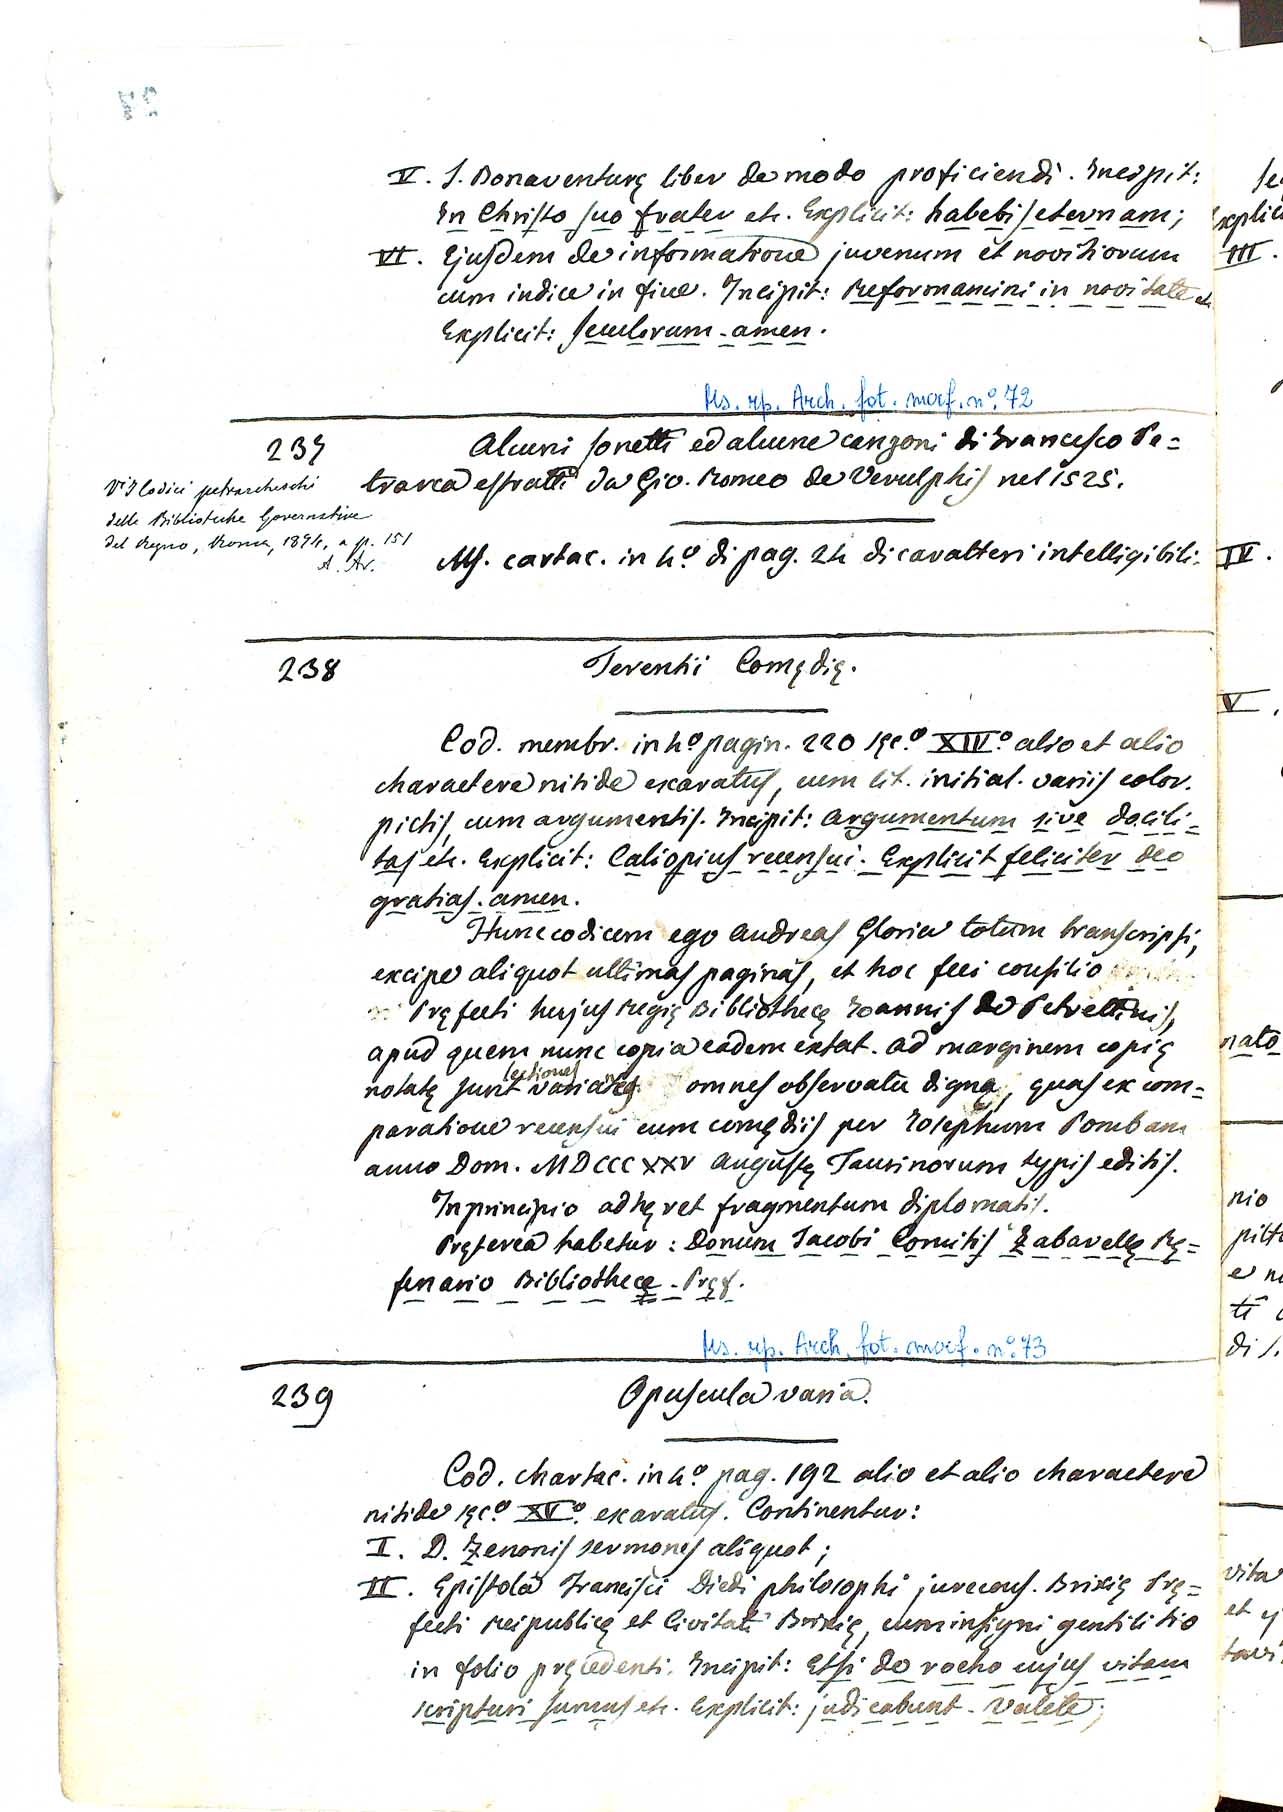 V. S. Bonaventurę liber de modo proficiendi. Incipit:
In Christo suo frater etc. Explicit: habebis eternam;
VI. Ejusdem de informatione juvenum et novitiorum
cum indice in fine. Incipit: Reformamini in novitate etc
Explicit: seculorum. amen.
Ms. rip. Arch. fot. morf. nº. 72
237
Alcuni sonetti ed alcune canzoni di Francesco Pe=
trarca estratti da Gio. Romeo de Verulphis nel 1525.
Vi I Codici petrarcheschi
delle Biblioteche Governative
del Regno, Roma, 1874, a p. 151
A. Ar.
Ms. cartac. in 4º. di pag. 24 di caratteri intelligibili.
238
Terentii Comędię.
Cod. membr. in 4º pagin. 220 sęc.º XIVº. alio et alio
charactere nitide exaratus, cum lit. initial. variis color.
pictis, cum argumentis. Incipit: argumentum sive docili=
tas etc. Explicit: Caliopius recensui. Explicit feliciter deo
gratias. amen.
Hunc codicem ego Andreas Gloria totum transcripsi,
excipe aliquot ultimas paginas, et hoc feci consilio
Pręfecti hujus Regię Bibliothecę Ioannis de Petrettinis,
apud quem nunc copia eadem extat. ad marginem copię
lectiones
notatę sunt variantes omnes observatu dignę, quas ex com=
paratione recensui cum comędiis per Iosephum Pombam
anno Dom. MDCCCXXV Augustę Taurinorum typis editis.
In principio adhęret fragmentum diplomatis.
Pręterea habetur: Donum Iacobi Comitis Zabarellę Pę=
senario Bibliothecę. Pręf.
Ms. rip. Arch. fot. morf. nº. 73
239
Opuscula varia.
Cod. chartac. in 4º. pag. 192 alio et alio charactere
nitide sęcº. XVº. exaratus. Continentur:
I. D. Zenonis sermones aliquot;
II. Epistola Francisci Diedi philosophi jurecons. Brixię Prę=
fecti Reipublicę et Civitati Brixię, cum insigni gentilitio
in folio pręcedenti. Incipit: Etsi de rocho cujus vitam
scripturi sumus etc. Explicit: judicabunt. Valete;
III.
IV.
V.
nato
nio
di S.
vita